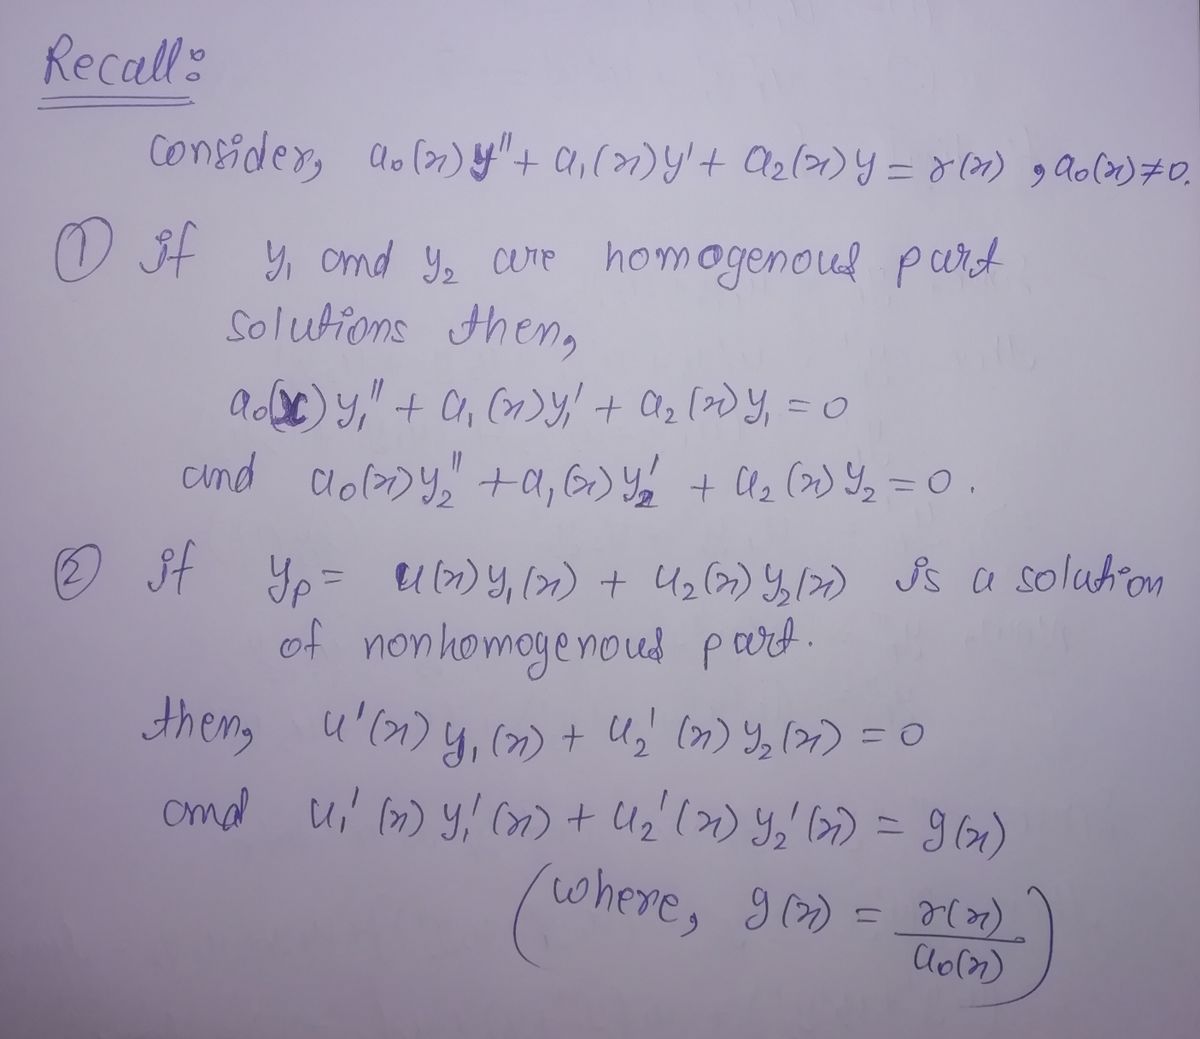 Recall:
Consider, a₀(x)y'' + a₁(x)y' + a₂(x)y = r(x) , a₀(x) ≠ 0.
① if y₁ and y₂ are homogenous part
solutions then,
a₀(x)y₁'' + a₁(x)y₁' + a₂(x)y₁ = 0
and a₀(x)y₂'' + a₁(x)y₂' + a₂(x)y₂ = 0 .
② if yₚ = u(x)y₁(x) + u₂(x)y₂(x) is a solution
of nonhomogenous part.
then, u'(x)y₁(x) + u₂'(x)y₂(x) = 0
and u₁'(x)y₁'(x) + u₂'(x)y₂'(x) = g(x)
(where, g(x) = r(x)/a₀(x))